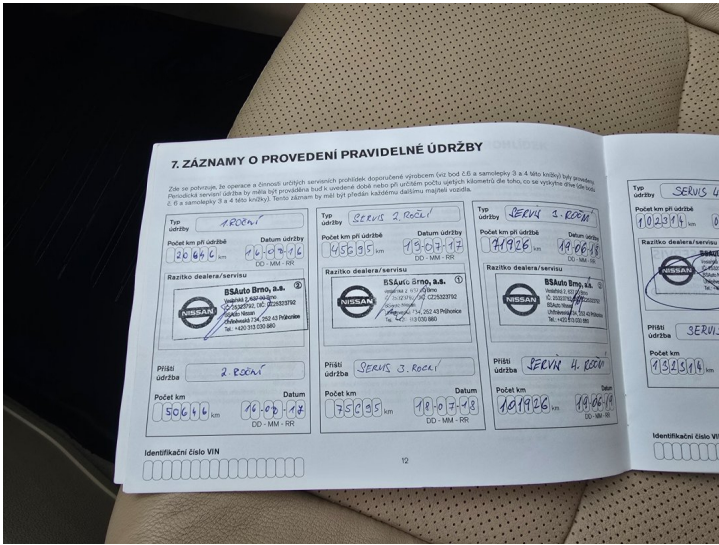 7. ZÁZNAMY O PROVEDENÍ PRAVIDELNÉ ÚDRŽBY
Zde se potvrzuje, že operace a činnosti určitých servisních prohlídek doporučené výrobcem (viz bod č.6 a samolepky 3 a 4 této knížky) byly provedeny
Periodická servisní údržba by měla být prováděna buď k uvedené době nebo při určitém počtu ujetých kilometrů dle toho, co se vyskytne dříve (dle bodu
č. 6 a samolepky 3 a 4 této knížky). Tento záznam by měl být předán každému dalšímu majiteli vozidla.
Typ údržby 1. ROČNÍ
Počet km při údržbě Datum údržby
20646 km 16-08-16
DD - MM - RR
Razítko dealera/servisu
NISSAN
BSAuto Brno, a.s. 2
Vestřhská 2, 637 00 Brno
IČ: 25323792, DIČ: CZ25323792
BSAuto Nissan
734, 252 43 Průhonice
Tel.: +420 313 030 880
Příští údržba 2. ROČNÍ
Počet km Datum
50646 km 16-08-17
DD - MM - RR
Typ údržby SERVIS 2. ROČNÍ
Počet km při údržbě Datum údržby
45695 km 19-07-17
DD - MM - RR
Razítko dealera/servisu
NISSAN
BSAuto Brno, a.s. 1
CZ25323792
734, 252 43 Průhonice
Tel.: +420 313 030 880
Příští údržba SERVIS 3. ROČNÍ
Počet km Datum
75695 km 18-07-18
DD - MM - RR
Typ údržby SERVIS 3. ROČNÍ
Počet km při údržbě Datum údržby
71926 km 19-06-18
DD - MM - RR
Razítko dealera/servisu
NISSAN
BSAuto Brno, a.s.
BSAuto Nissan
734, 252 43 Průhonice
Tel.: +420 313 030 880
Příští údržba SERVIS 4. ROČNÍ
Počet km Datum
101926 km 19-06-19
DD - MM - RR
Identifikační číslo VIN
12
Typ údržby SERVIS 4
Počet km při údržbě
102314 km
Razítko dealera/servisu
NISSAN
BSAuto
Příští údržba SERVIS
Počet km
132314 km
Identifikační číslo VIN